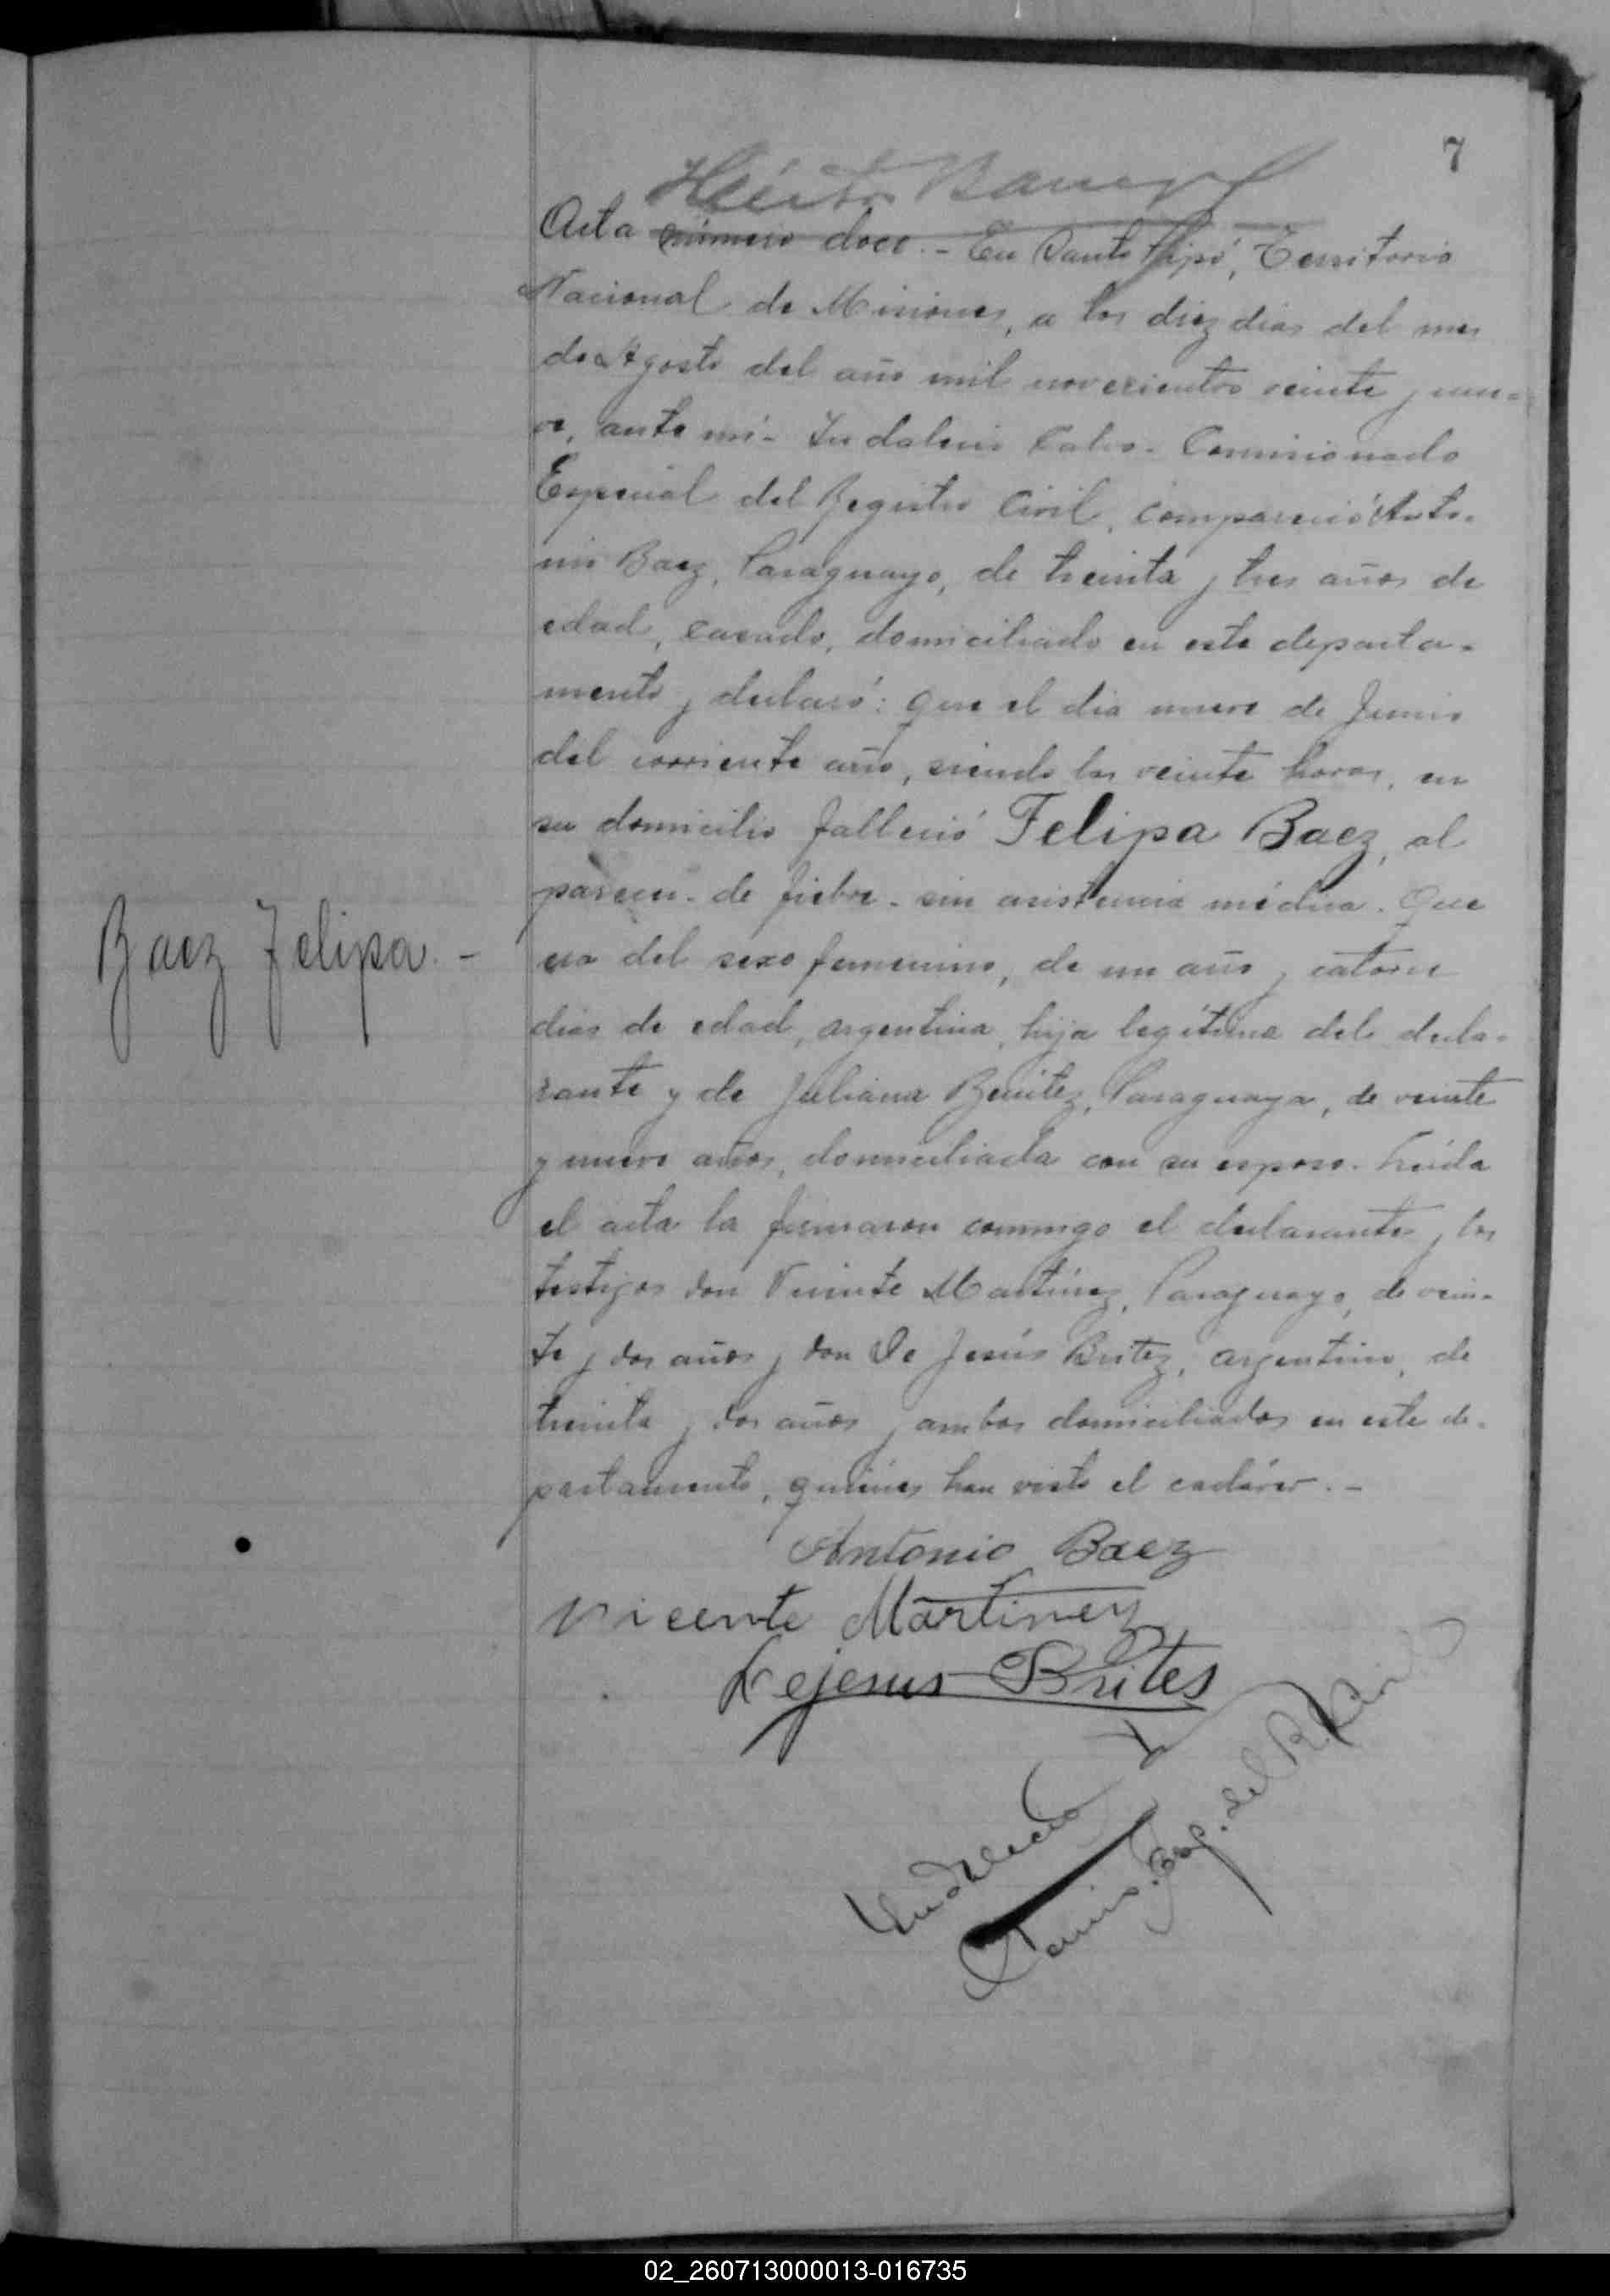 7
Acta número doce. - En Santo Pipó, Territorio
Nacional de Misiones, a los diez dias del mes
de Agosto del año mil novecientos veinte y nue-
ve, ante mí - Indalecio Calvo - Comisionado
Especial del Registro Civil, compareció Anto-
nio Baez, Paraguayo, de treinta y tres años de
edad, casado, domiciliado en este departa-
mento y declaró: Que el dia nueve de Junio
del corriente año, siendo las veinte horas, en
su domicilio falleció Felipa Baez, al
parecer - de fiebre - sin asistencia médica. Que
Baez Felipa. -
era del sexo femenino, de un año y catorce
dias de edad, argentina, hija legítima del decla-
rante y de Juliana Benitez, Paraguaya, de veinte
y nueve años, domiciliada con su esposo. Leída
el acta la firmaron conmigo el declarante y los
testigos don Vicente Martínez, Paraguayo, de vein-
te y dos años y don De Jesús Britez, argentino, de
treinta y dos años y ambos domiciliados en este de-
partamento, quiénes han visto el cadáver. -
Antonio Baez
Vicente Martinez
Dejesus Brites
Indalecio
Comis. Esp. del R. Civil
02_260713000013-016735